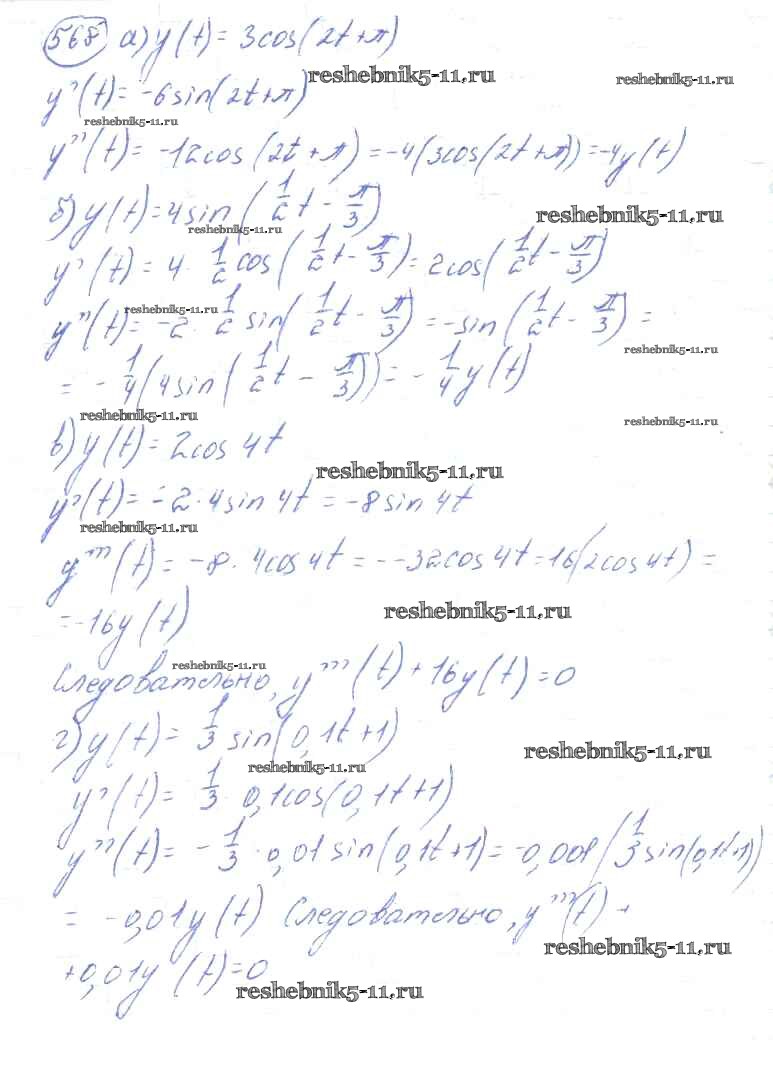 568 а) y(t) = 3cos(2t+π)
reshebnik5-11.ru
reshebnik5-11.ru
y'(t) = -6sin(2t+π)
reshebnik5-11.ru
y''(t) = -12cos(2t+π) = -4(3cos(2t+π)) = -4y(t)
б) y(t) = 4sin(1/2t - π/3)
reshebnik5-11.ru
reshebnik5-11.ru
y'(t) = 4 · 1/2 cos(1/2t - π/3) = 2cos(1/2t - π/3)
reshebnik5-11.ru
y''(t) = -2 · 1/2 sin(1/2t - π/3) = -sin(1/2t - π/3) =
reshebnik5-11.ru
= -1/4(4sin(1/2t - π/3)) = -1/4y(t)
reshebnik5-11.ru
reshebnik5-11.ru
в) y(t) = 2cos 4t
reshebnik5-11.ru
y'(t) = -2·4sin 4t = -8sin 4t
reshebnik5-11.ru
y'''(t) = -8·4cos 4t = --32cos 4t = 16(2cos 4t) =
= -16y(t)
reshebnik5-11.ru
reshebnik5-11.ru
Следовательно, y'''(t) + 16y(t) = 0
г) y(t) = 1/3 sin(0,1t+1)
reshebnik5-11.ru
reshebnik5-11.ru
y'(t) = 1/3 · 0,1cos(0,1t+1)
y''(t) = -1/3 · 0,01sin(0,1t+1) = -0,001(1/3sin(0,1t+1))
= -0,01y(t) Следовательно, y'''(t) +
reshebnik5-11.ru
+0,01y(t) = 0
reshebnik5-11.ru